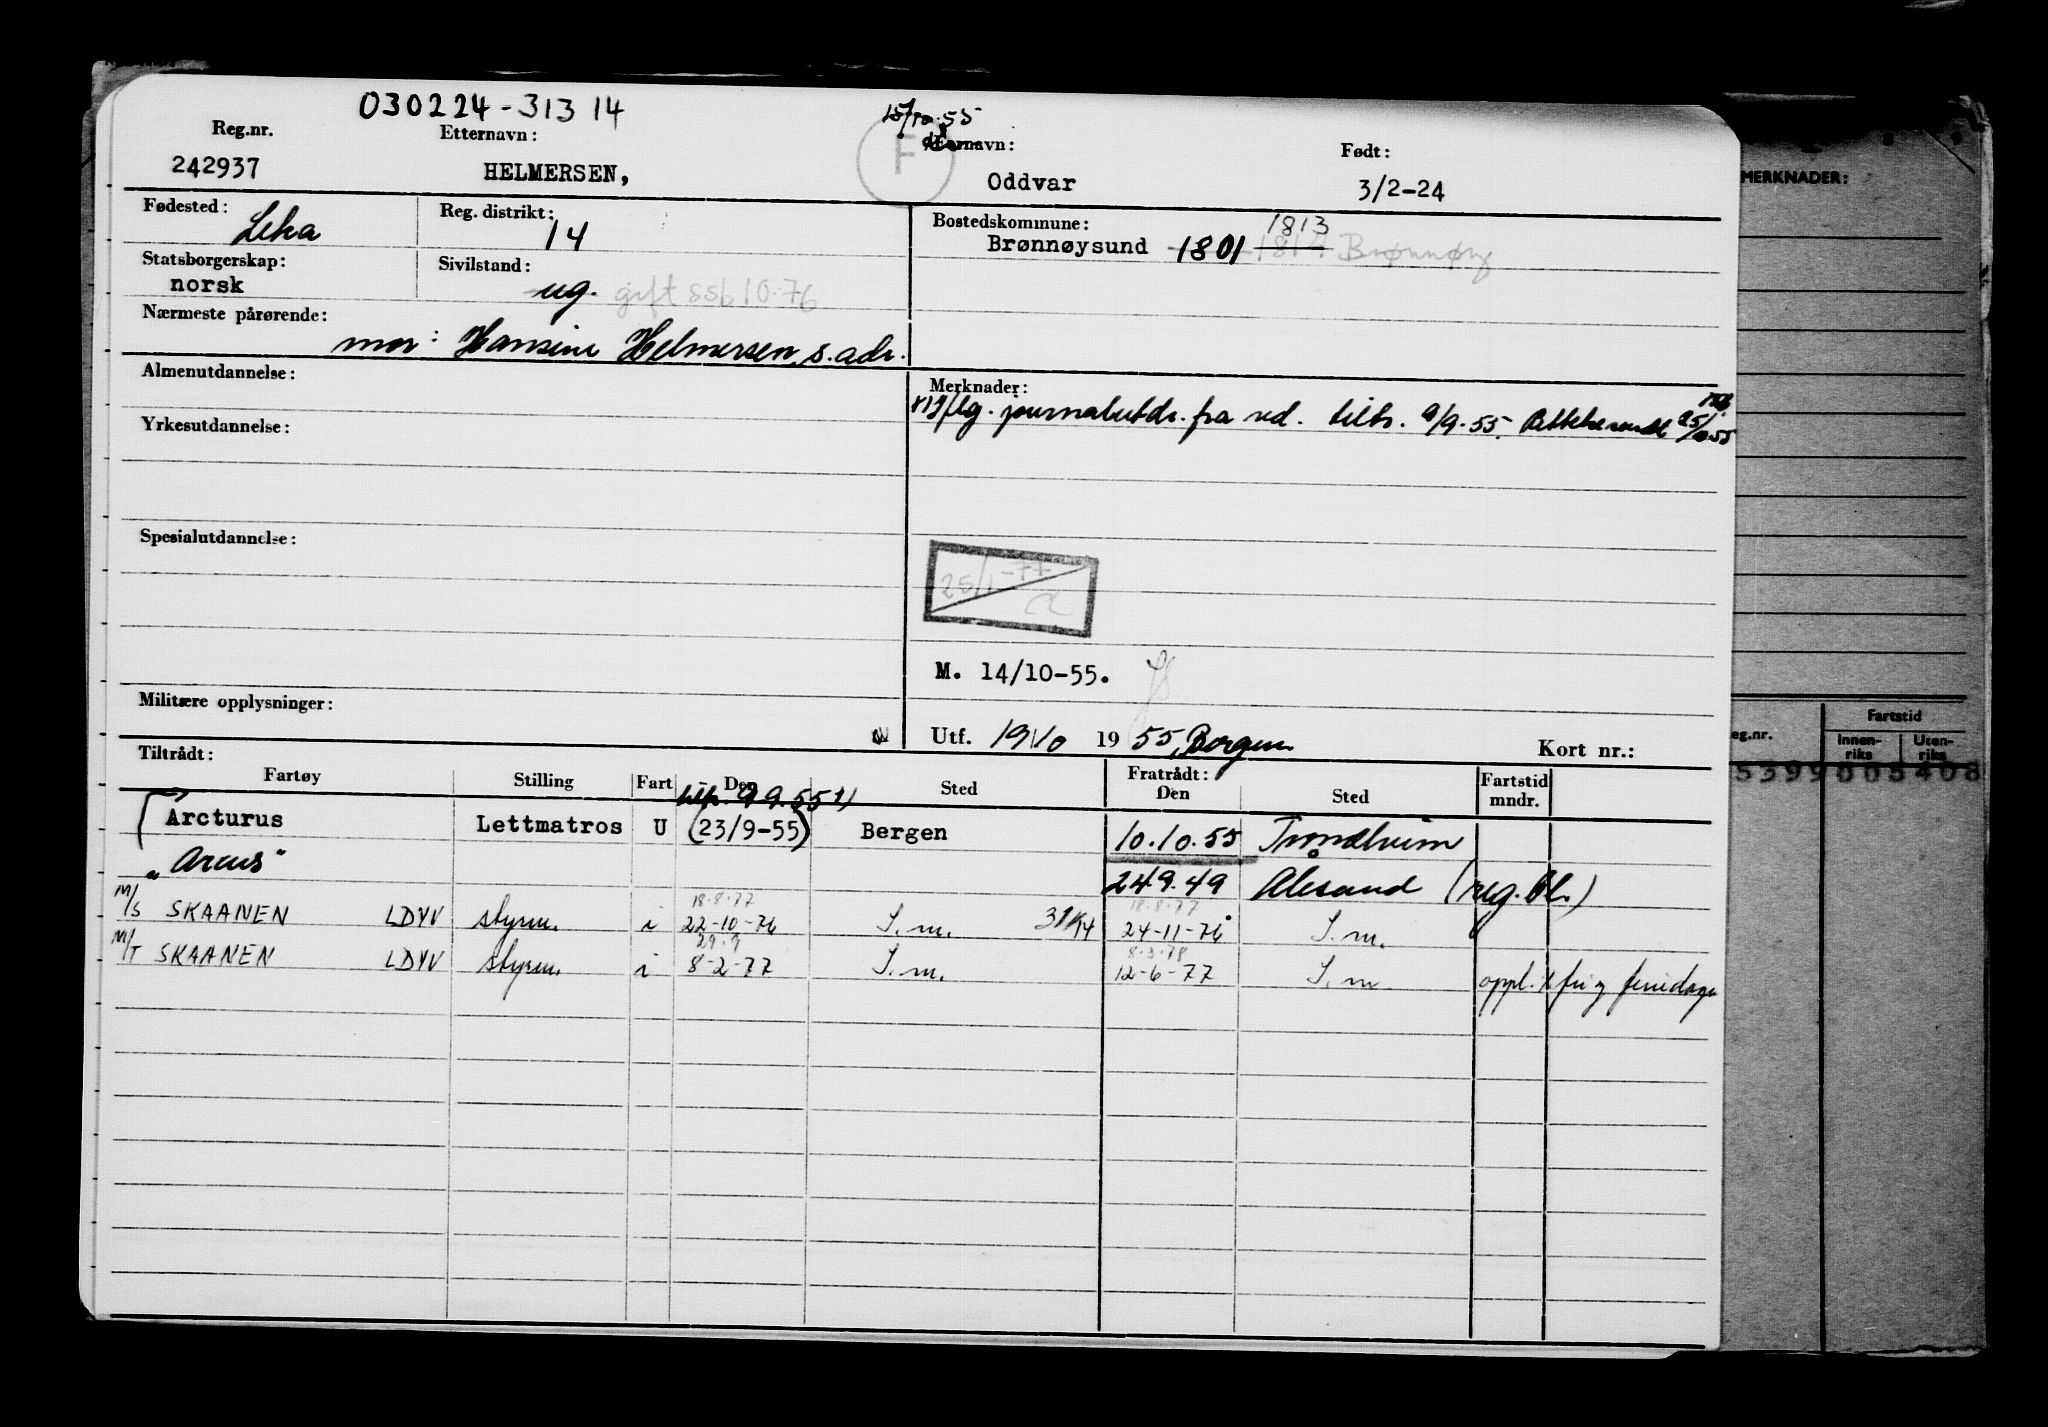 030224-31314
15/10-55
Reg.nr.
Etternavn:
Fornavn:
Født:
242937
HELMERSEN,
F
Oddvar
3/2-24
Fødested:
Leka
Reg. distrikt:
14
Bostedskommune:
1813
Brønnøysund 1801 1814 Brønnøy
Statsborgerskap:
norsk
Sivilstand:
ug. gift ssb 10.76
Nærmeste pårørende:
mor: Hansine Helmersen, s. adr.
Almenutdannelse:
Merknader:
x) Iflg. journalutdr. fra red. tiltr. 9/9.55. 25/10 55
Yrkesutdannelse:
Spesialutdannelse:
25/1-77
M. 14/10-55.
Militære opplysninger:
Utf. 19/10 1955, Bergen
Kort nr.:
Tiltrådt:
Fratrådt:
Fartøy
Stilling
Fart
Den
Sted
Den
Sted
Fartstid mndr.
9.9.55 x)
Arcturus Lettmatros U (23/9-55) Bergen 10.10.55 Trondheim
"Arcus" 24.9.49 Ålesund (reg. bl.)
18.8.77 18.8.77
M/S SKAANEN LDYV styrm. i 22-10-76 S.m. 31/14 24-11-76 S.m.
29.9 8.3.78
M/T SKAANEN LDYV styrm. i 8-2-77 S.m. 12-6-77 S.m. oppl. fri og feriedager
MERKNADER:
eg.nr.
Fartstid
Innen-riks
Uten-riks
5399005408